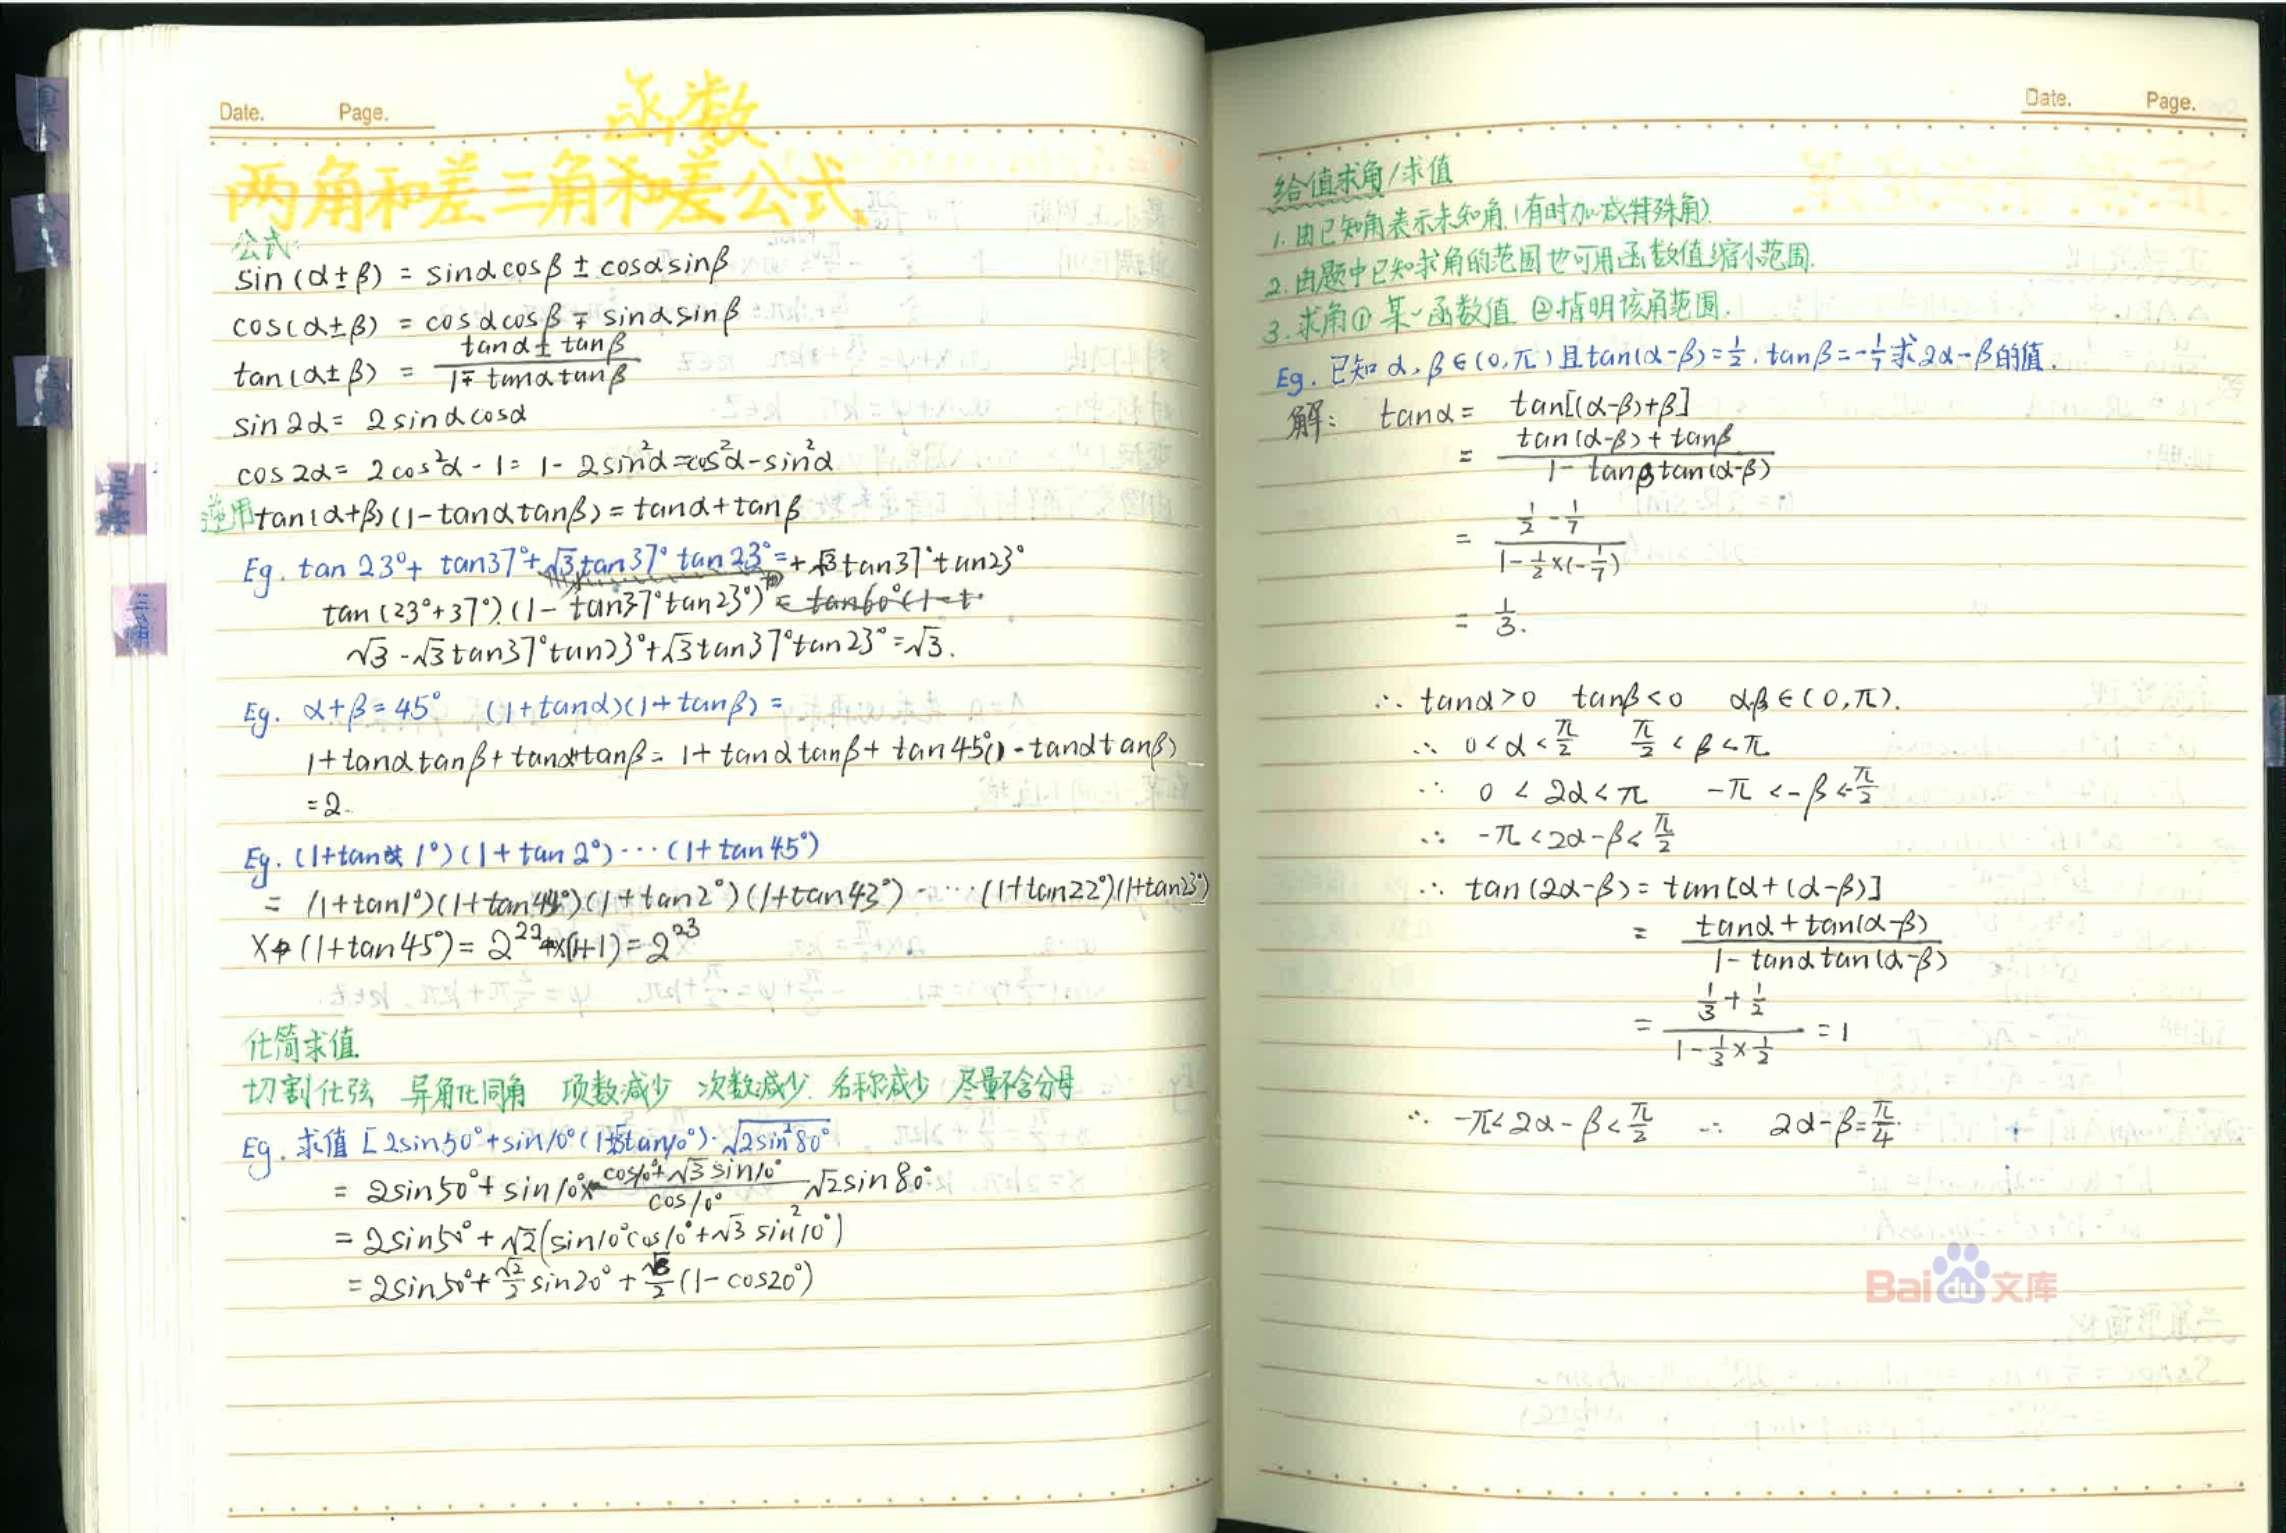 Date. Page.
函数
两角和差三角和差公式.
公式:
sin(α±β) = sinαcosβ ± cosαsinβ
cos(α±β) = cosαcosβ ∓ sinαsinβ
tan(α±β) = (tanα ± tanβ)/(1∓tanαtanβ)
sin2α = 2sinαcosα
cos2α = 2cos²α - 1 = 1 - 2sin²α = cos²α - sin²α
逆用 tan(α+β)(1-tanαtanβ) = tanα+tanβ
Eg. tan23°+ tan37°+√3tan37° tan23° = +√3tan37°tan23°
tan(23°+37°)(1-tan37°tan23°) = tan60°(1-t
√3-√3tan37°tan23°+√3tan37°tan23°=√3.
Eg. α+β=45° (1+tanα)(1+tanβ)=
1+tanαtanβ+tanα+tanβ = 1+tanαtanβ+tan45°(1-tanαtanβ)
=2.
Eg. (1+tan1°)(1+tan2°)···(1+tan45°)
= (1+tan1°)(1+tan44°)(1+tan2°)(1+tan43°)·····(1+tan22°)(1+tan23°)
×(1+tan45°)=2²²×(1+1)=2²³
化简求值
切割化弦 异角化同角 项数减少 次数减少. 名称减少 尽量不含分母
Eg. 求值 [2sin50°+sin10°(1+√3tan10°)·√(2sin²80°)
= 2sin50°+sin10°×(cos10°+√3sin10°)/cos10° √2sin80°
= 2sin50°+√2(sin10°cos10°+√3sin²10°)
= 2sin50°+√2/2 sin20°+√6/2(1-cos20°)
Date. Page.
给值求角/求值
1. 由已知角表示未知角.(有时加减特殊角)
2. 由题中已知求角的范围也可用函数值缩小范围.
3. 求角① 某一函数值 ②指明该角范围.
Eg. 已知α,β∈(0,π)且tan(α-β)=1/2. tanβ=-1/7求2α-β的值.
解: tanα = tan[(α-β)+β]
= (tan(α-β)+tanβ)/(1-tanβtan(α-β))
= (1/2-1/7)/(1-1/2×(-1/7))
= 1/3.
∴ tanα>0 tanβ<0 α,β∈(0,π).
∴ 0<α<π/2 π/2<β<π
∴ 0<2α<π -π<-β<-π/2
∴ -π<2α-β<π/2
∴ tan(2α-β)=tan[α+(α-β)]
= (tanα+tan(α-β))/(1-tanαtan(α-β))
= (1/3+1/2)/(1-1/3×1/2) = 1
∵ -π<2α-β<π/2 ∴ 2α-β=π/4.
Baidu文库